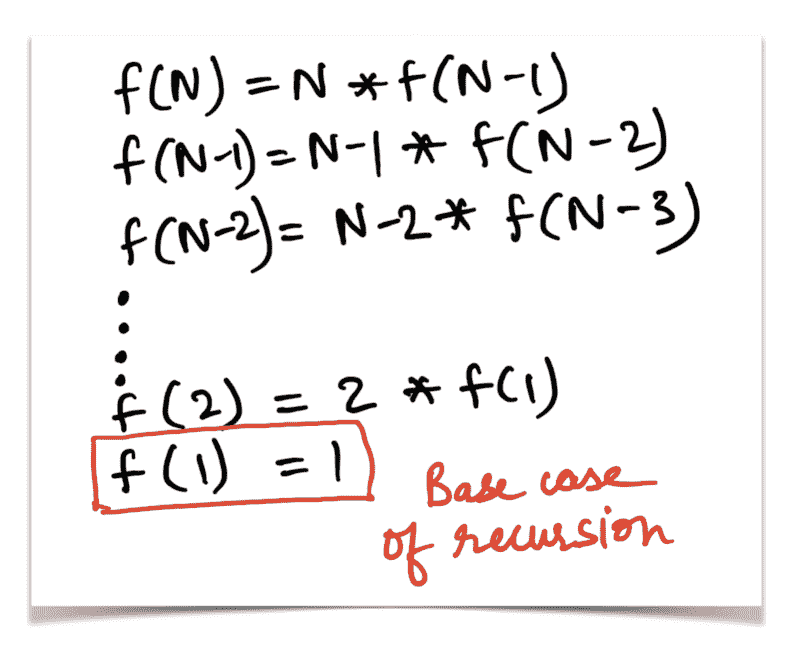 f(N) = N * f(N-1)
f(N-1) = N-1 * f(N-2)
f(N-2) = N-2 * f(N-3)
f(2) = 2 * f(1)
f(1) = 1
Base case
of recursion